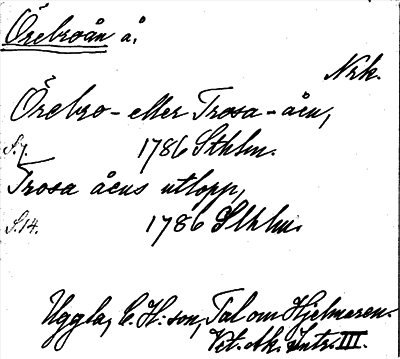 Örebroån å.
Nrk.
Örebro- eller Trosa-ån,
S. 7. 1786 Sthlm.
Trosa åens utlopp,
S. 14. 1786 Sthlm.
Uggla, C. H:son, Tal om Hjelmaren.
Vet. Ak. Intr. III.